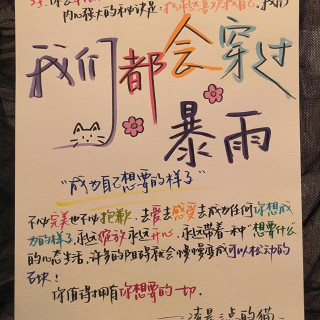 内心强大的秘诀是:我永远喜欢我自己.我们
我们都会穿过
暴雨
"成为自己想要的样子"
不必完美也不必抱歉.去爱去感受去成为任何你想成
为的样子.永远绽放永远开心.永远带着一种"想要什么"
的心态生活.许多的阻碍就会慢慢变成可以松动的
石块!
你值得拥有你想要的一切.
的猫.